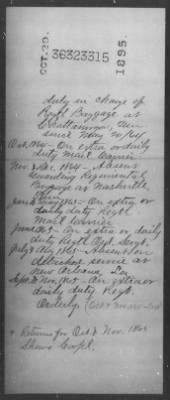 OCT. 29.
36323315
1895.
duty in charge of
Regtl Baggage at
Chattanooga, Tenn
since May 20/64
Oct. 1864 - On extra or daily
duty Mail Carrier
Nov. & Dec. 1864 - Absent
Guarding Regimental
Baggage at Nashville,
Tenn
1865 - On extra or
daily duty Regtl
Mail Carrier
June 1865 - On extra or daily
duty Regtl
July & Aug. 1865 - Absent on
detached service at
New Orleans, La
Sept. 1865 - On extra or
daily duty Regt.
Orderly. (Oct &
+ Returns for Oct. & Nov. 1865
Shows Capt.